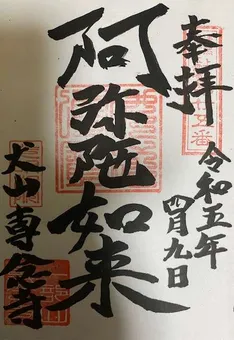 奉拝
令和五年
四月九日
阿弥陀如来
犬山専念寺